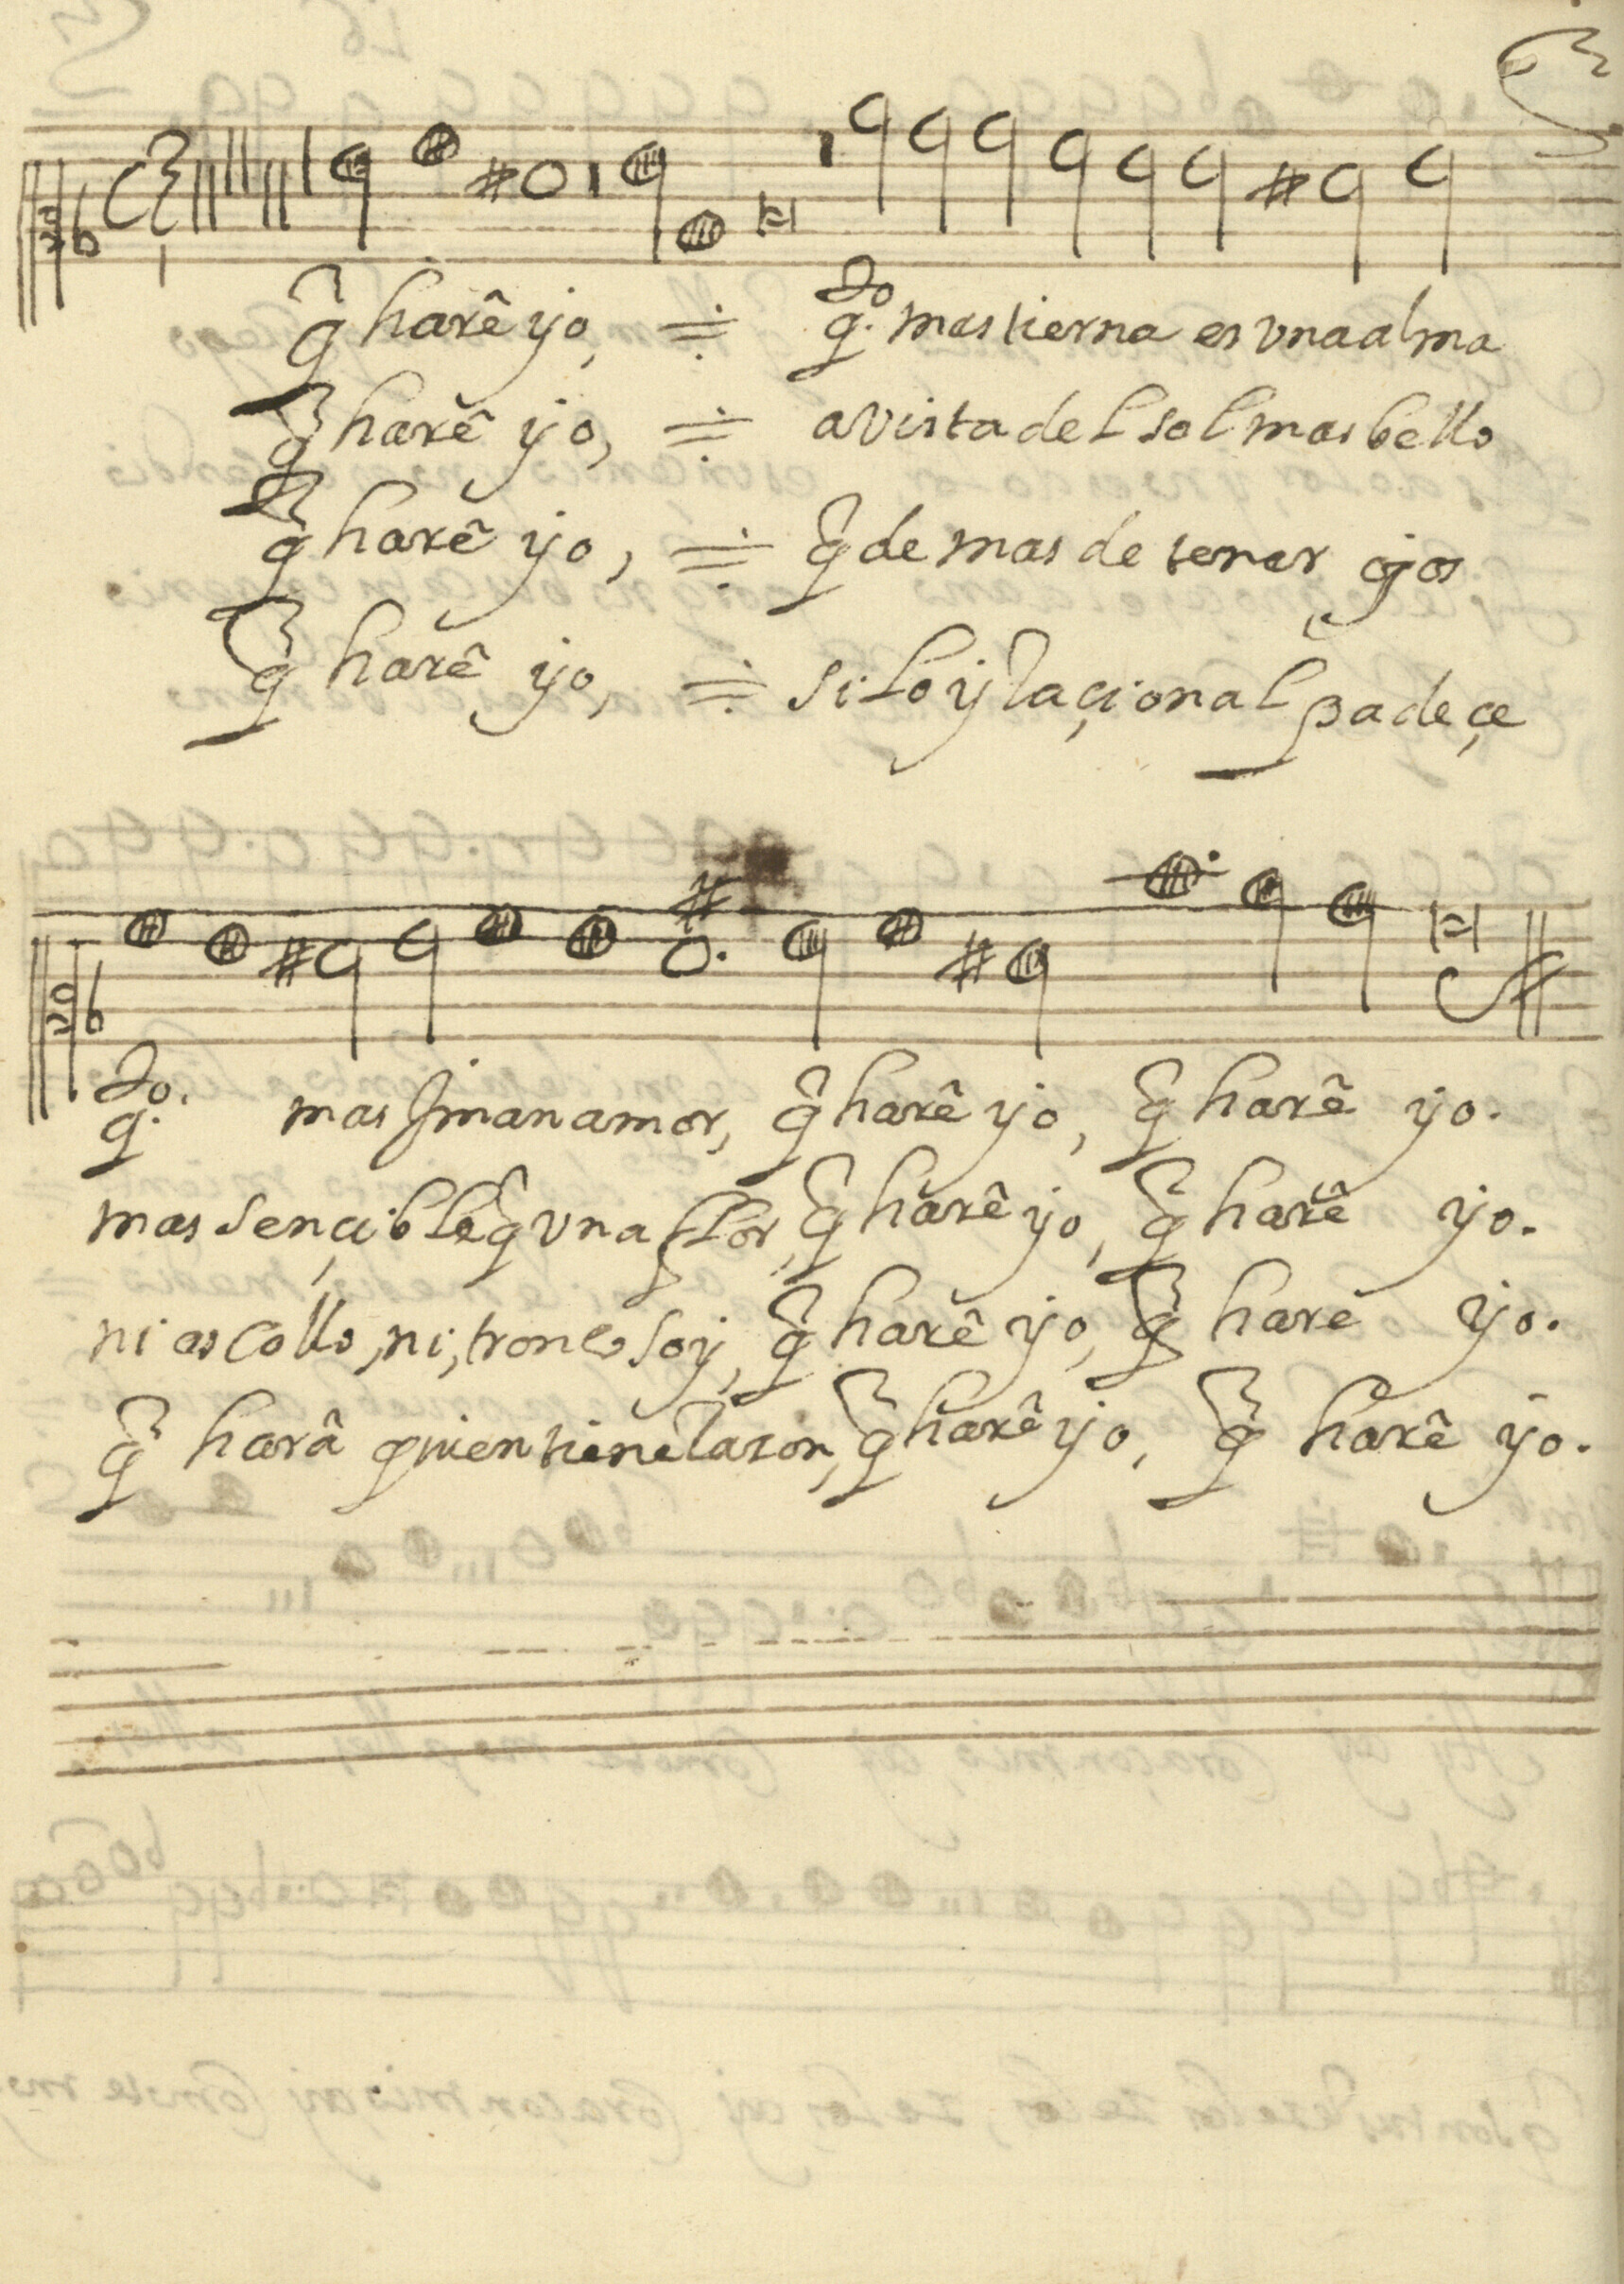 q̃ harê yo, ÷ q.do mas tierna es vna alma
q̃ harê yo, ÷ a vista del sol mas bello
q̃ harê yo, ÷ q̃ de mas de tener ojos
q̃ harê yo, ÷ si lo yRaçional padeçe
q.do mas Jman amor, q̃ harê yo, q̃ harê yo.
mas sençible q̃ vna flor, q̃ harê yo, q̃ harê yo.
ni escollo, ni, tronco soy, q̃ harê yo, q̃ harê yo.
q̃ harâ quien tiene Razon, q̃ harê yo, q̃ harê yo.